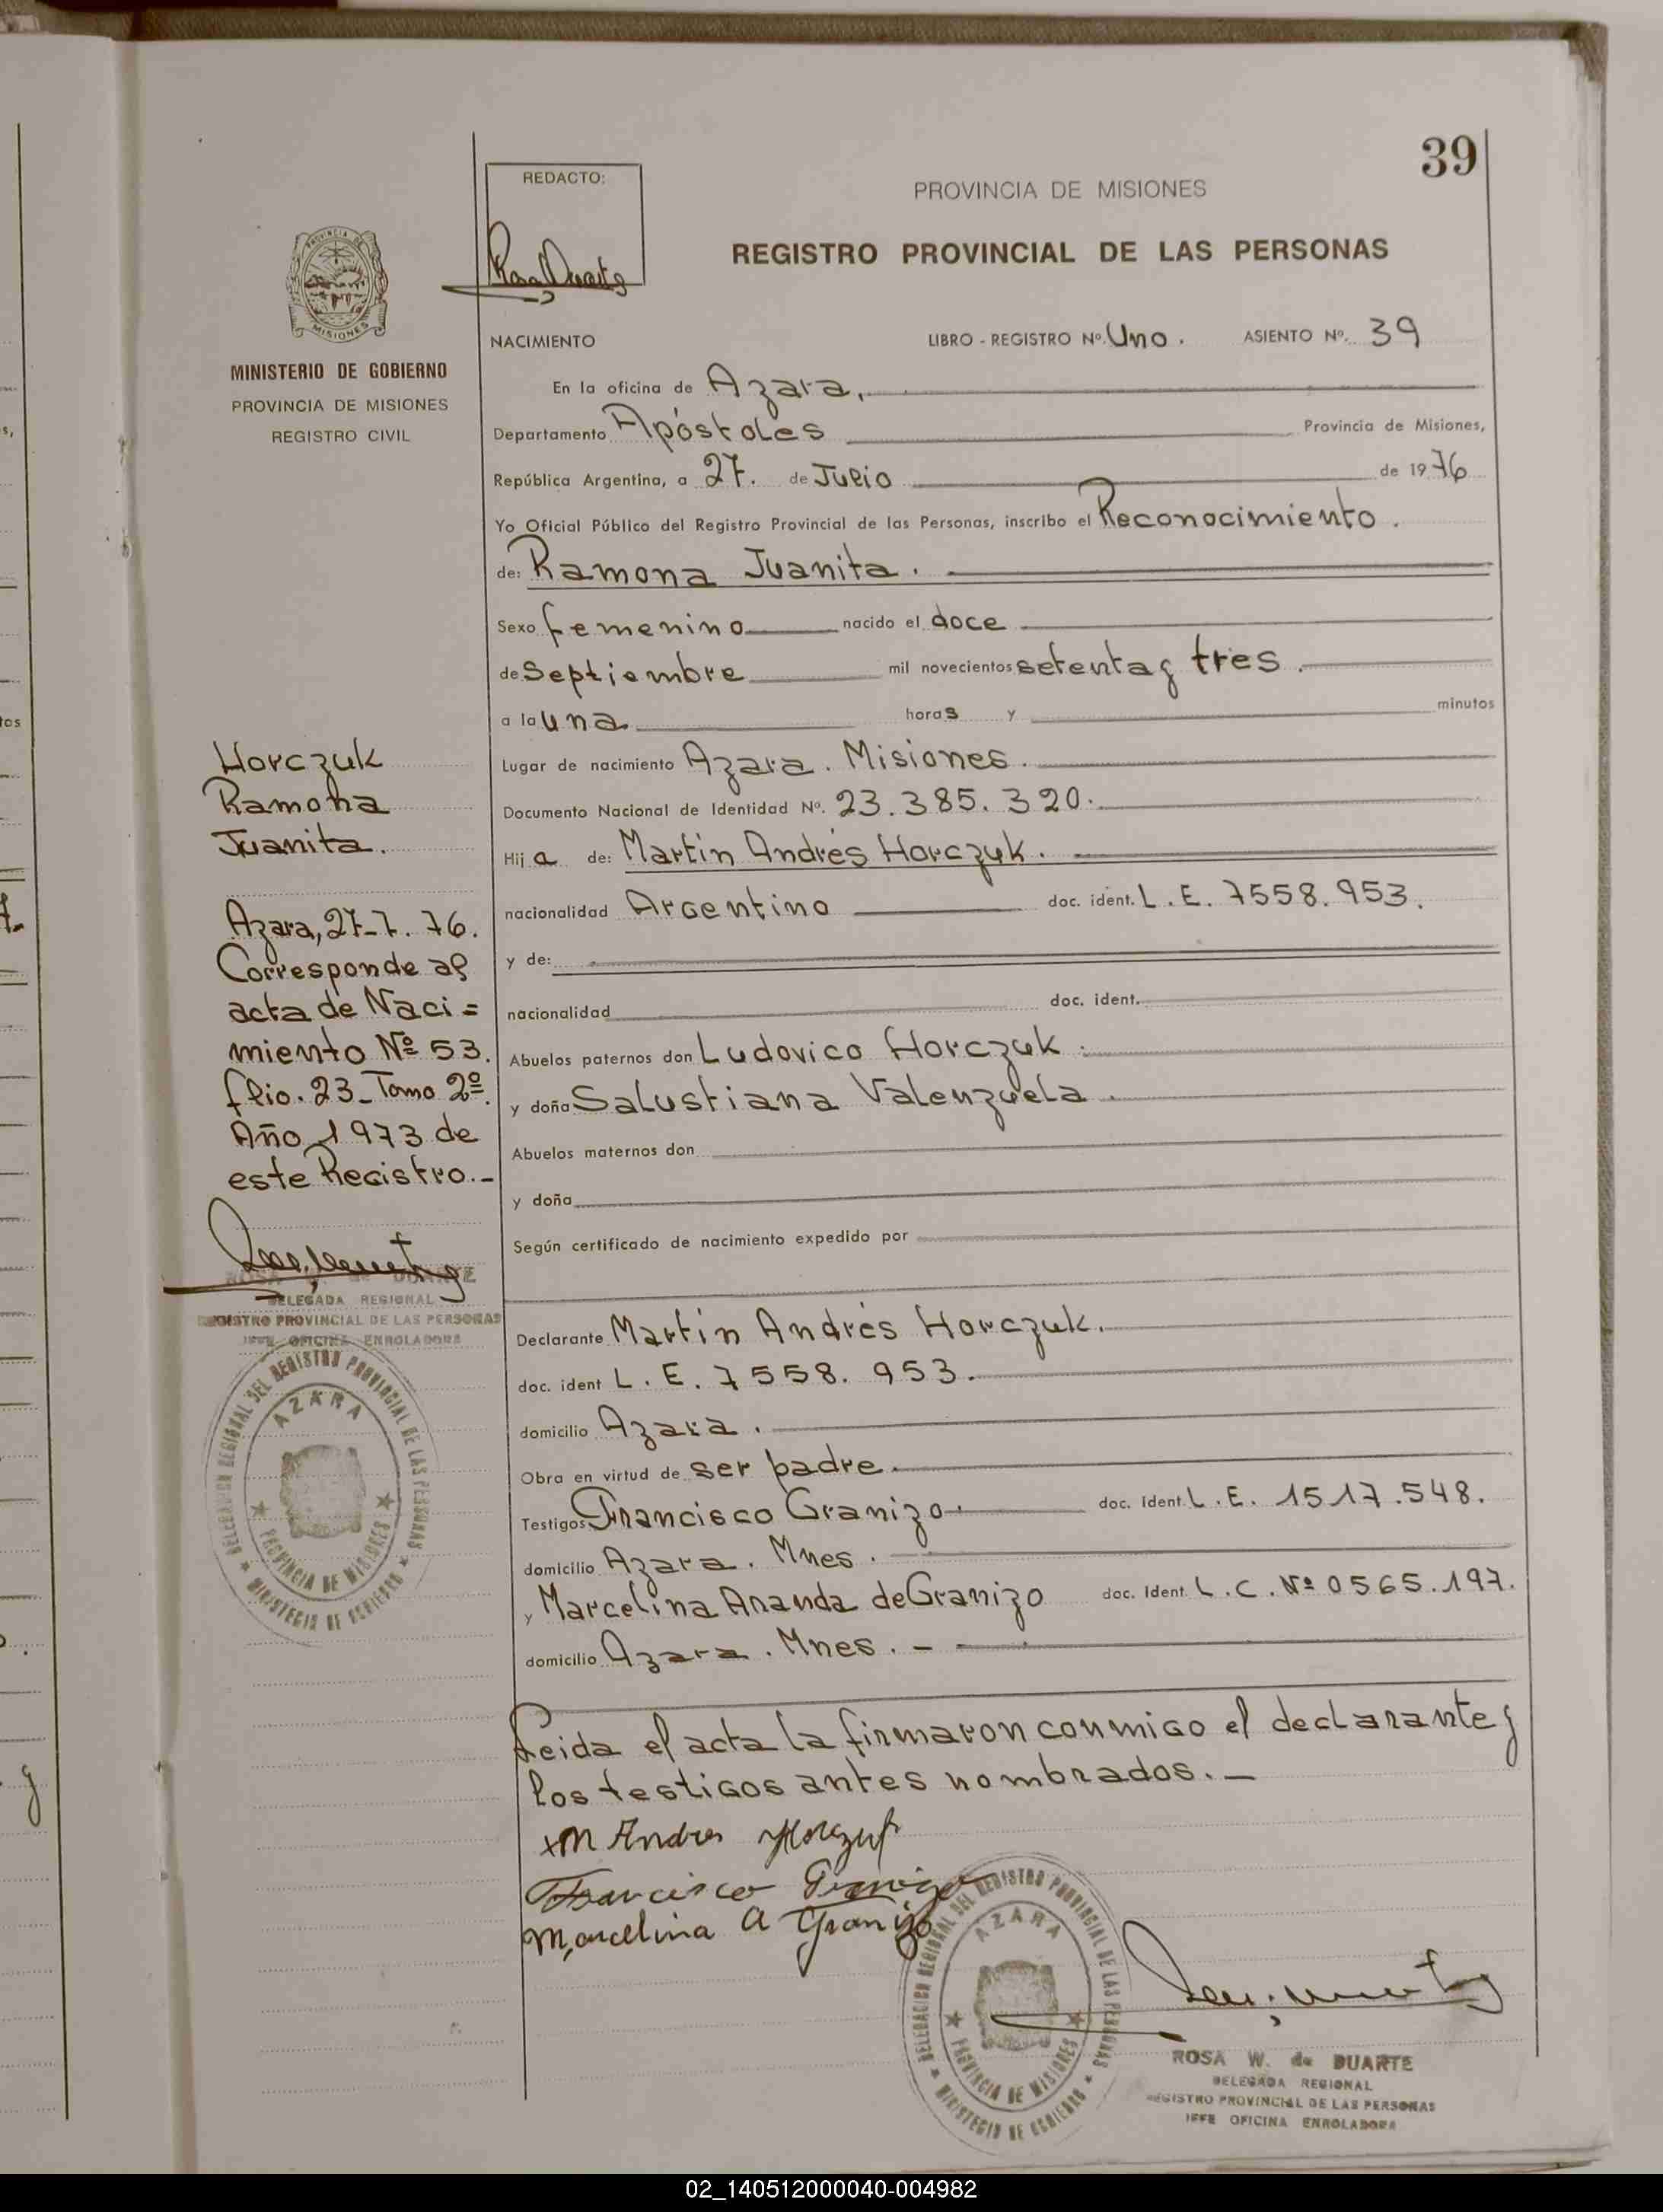 39
REDACTO:
PROVINCIA DE MISIONES
REGISTRO PROVINCIAL DE LAS PERSONAS
NACIMIENTO LIBRO - REGISTRO Nº. Uno. ASIENTO Nº. 39
MINISTERIO DE GOBIERNO
PROVINCIA DE MISIONES
REGISTRO CIVIL
En la oficina de Azara,
Departamento Apóstoles Provincia de Misiones,
República Argentina, a 27. de Julio de 1976
Yo Oficial Público del Registro Provincial de las Personas, inscribo el Reconocimiento.
de: Ramona Juanita.
Sexo femenino nacido el doce
de Septiembre mil novecientos setenta y tres.
a la una horas y minutos
Lugar de nacimiento Azara. Misiones.
Documento Nacional de Identidad Nº. 23.385.320.
Hija de: Martín Andrés Horczuk.
nacionalidad Argentino doc. ident. L.E. 7558.953.
y de:
nacionalidad doc. ident.
Abuelos paternos don Ludovico Horczuk.
y doña Salustiana Valenzuela.
Abuelos maternos don
y doña
Según certificado de nacimiento expedido por
Declarante Martín Andrés Horczuk.
doc. ident L.E. 7558.953.
domicilio Azara.
Obra en virtud de ser padre.
Testigos Francisco Granizo. doc. Ident. L.E. 1517.548.
domicilio Azara. Mnes.
y Marcelina Ananda de Granizo doc. Ident. L.C. Nº 0565.197.
domicilio Azara. Mnes. -
Leida el acta la firmaron conmigo el declarante y
los testigos antes nombrados. -
Francisco Granizo
Marcelina A Granizo
Horczuk
Ramona
Juanita.
Azara, 27-7.76.
Corresponde al
acta de Naci=
miento Nº 53.
flio. 23 - Tomo 2º.
Año 1973 de
este Registro. -
ROSA W. de DUARTE
DELEGADA REGIONAL
REGISTRO PROVINCIAL DE LAS PERSONAS
JEFE OFICINA ENROLADORA
DELEGACION REGIONAL DEL REGISTRO PROVINCIAL DE LAS PERSONAS
AZARA
PROVINCIA DE MISIONES
MINISTERIO DE GOBIERNO
DELEGACION REGIONAL DEL REGISTRO PROVINCIAL DE LAS PERSONAS
AZARA
PROVINCIA DE MISIONES
MINISTERIO DE GOBIERNO
ROSA W. de DUARTE
DELEGADA REGIONAL
REGISTRO PROVINCIAL DE LAS PERSONAS
JEFE OFICINA ENROLADORA
02_140512000040-004982